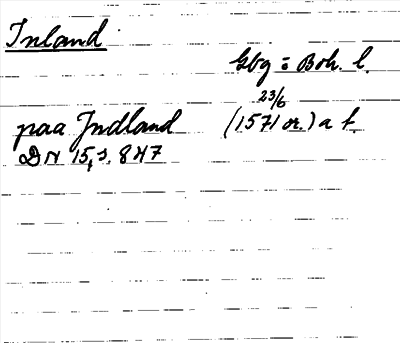 Inland
Gbg o Boh. l.
23/6
paa Jndland (1571 or.) a f.
DN 15, s. 847